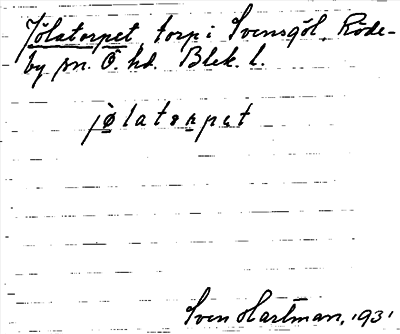 Jölatorpet, torp i Svensgöl, Röde-
by sn. Ö. hd. Blek. l.
jölatorpet
Sven Hartman, 1931